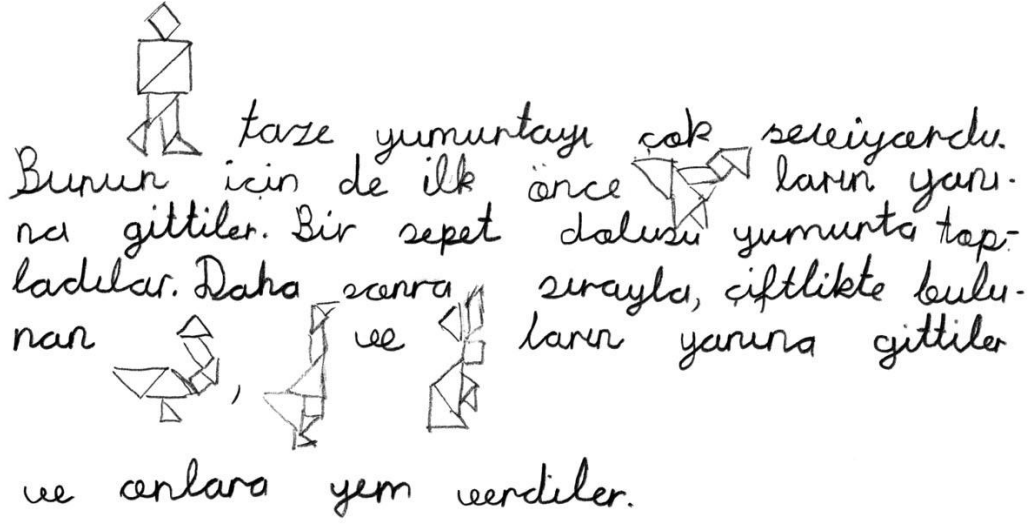 taze yumurtayı çok seviyordu.
Bunun için de ilk önce ların yanı-
na gittiler. Bir sepet dolusu yumurta top-
ladılar. Daha sonra sırayla, çiftlikte bulu-
nan , ve ların yanına gittiler
ve onlara yem verdiler.